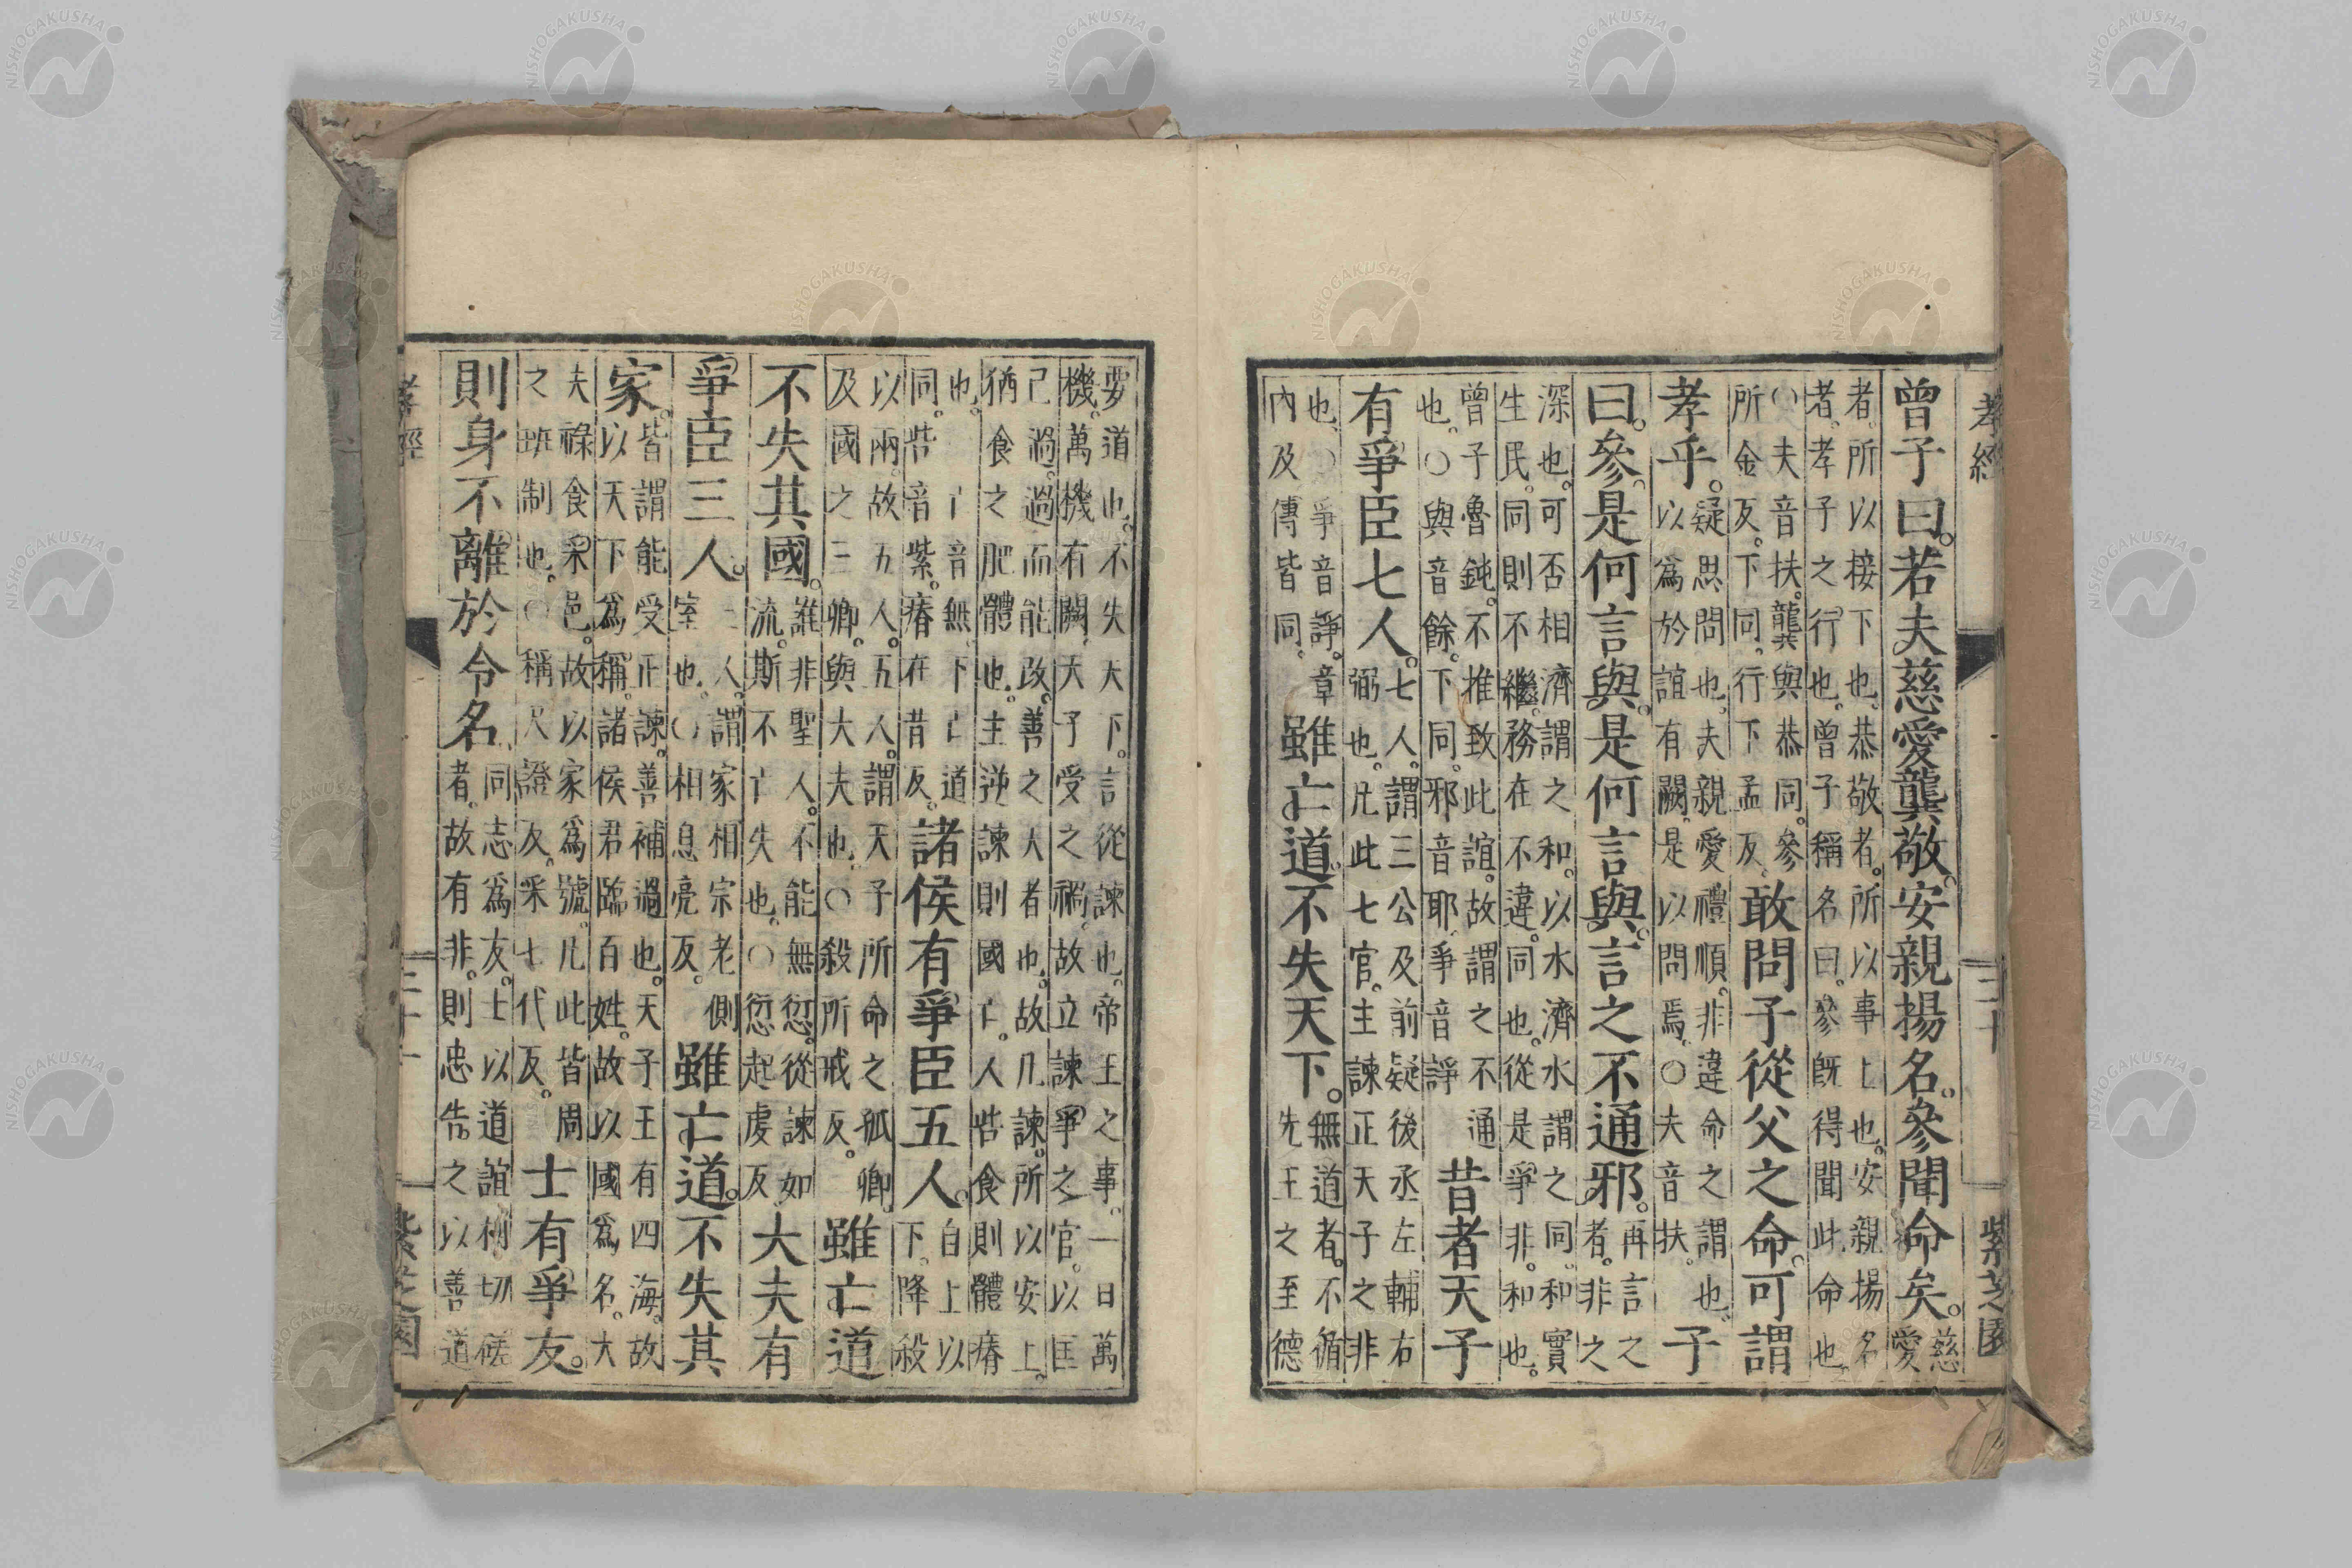 孝經
三十
紫芝園
曾子曰。若夫慈愛龔敬。安親揚名。參聞命矣。慈愛
者。所以接下也。恭敬者。所以事上也。安親揚名
者。孝子之行也。曾子稱名曰。參既得聞此命也。
○夫音扶。龔與恭同。參
所金反。下同。行下孟反。敢問子從父之命。可謂
孝乎。疑思問也。夫親愛禮順。非違命之謂也。
以爲於誼有闕。是以問焉。○夫音扶。子
曰。參。是何言與。是何言與。言之不通邪。再言之者。非之
深也。可否相濟謂之和。以水濟水謂之同。和實
生民。同則不繼。務在不違。同也。從是爭非。和也。
曾子魯鈍。不推致此誼。故謂之不通
也。○與音餘。下同。邪音耶。爭音諍。昔者天子
有爭臣七人。七人。謂三公及前疑後丞左輔右
弼也。凡此七官。主諫正天子之非
也。○爭音諍。章
內及傳皆同。雖亡道。不失天下。無道者。不循
先王之至德
要道也。不失天下。言從諫也。帝王之事。一日萬
機。萬機有闕。天子受之禍。故立諫爭之官。以匡
己過。過而能改。善之大者也。故凡諫。所以安上。
猶食之肥體也。主逆諫則國亡。人呰食則體瘠
也。○亡音無。下亡道
同。呰音紫。瘠在昔反。諸侯有爭臣五人。自上以下。降殺
以兩。故五人。五人。謂天子所命之孤卿。
及國之三卿。與大夫也。○殺所戒反。雖亡道
不失其國。雖非聖人。不能無愆。從諫如
流。斯不亡失也。○愆起虔反。大夫有
爭臣三人。三人。謂家相宗老側
室也。○相息亮反。雖亡道。不失其
家。皆謂能受正諫。善補過也。天子王有四海。故
以天下爲稱。諸侯君臨百姓。故以國爲名。大
夫祿食采邑。故以家爲號。凡此皆周
之班制也。○稱尺證反。采七代反。士有爭友。
則身不離於令名。同志爲友。士以道誼相切磋
者。故有非。則忠告之以善道
孝經
三十一
紫芝園